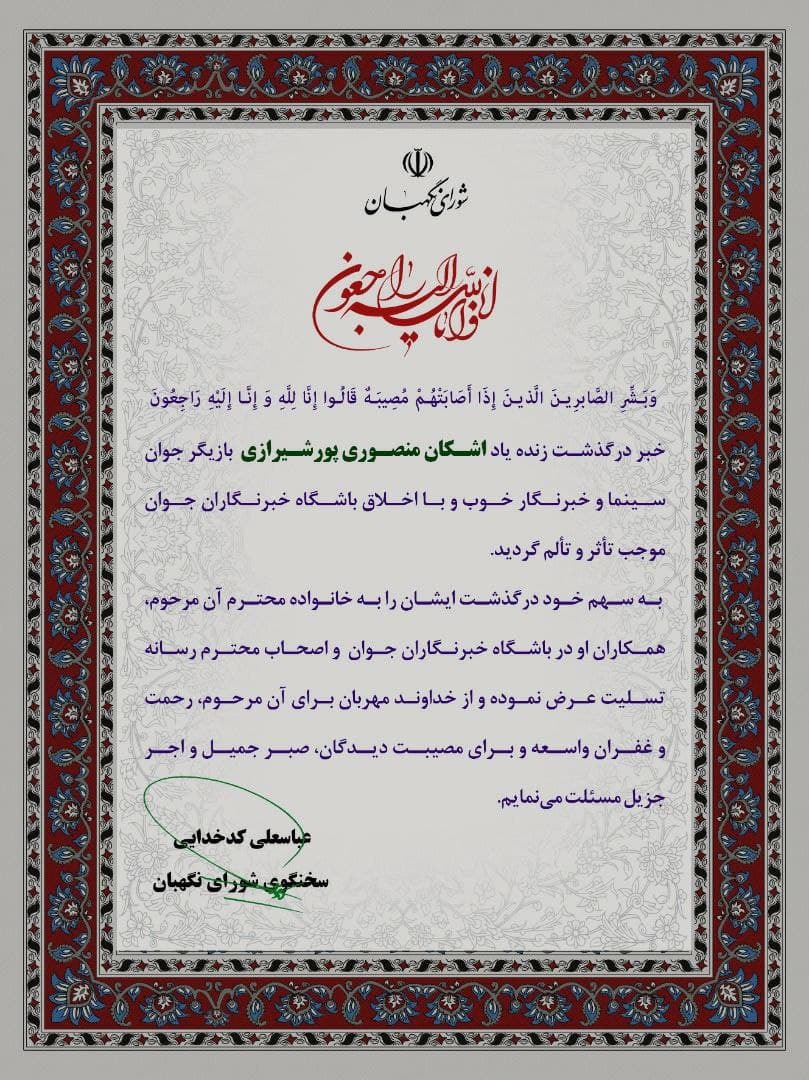 شورای نگهبان
انا لله و انا الیه راجعون
وَبَشِّرِ الصَّابِرِینَ الَّذینَ إِذَا أَصَابَتْهُمْ مُصِیبَهٌ قَالُوا إِنَّا لِلَّهِ وَ إِنَّا إِلَیْهِ رَاجِعُونَ
خبر درگذشت زنده یاد اشکان منصوری پورشیرازی بازیگر جوان
سینما و خبرنگار خوب و با اخلاق باشگاه خبرنگاران جوان
موجب تأثر و تألم گردید.
به سهم خود درگذشت ایشان را به خانواده محترم آن مرحوم،
همکاران او در باشگاه خبرنگاران جوان و اصحاب محترم رسانه
تسلیت عرض نموده و از خداوند مهربان برای آن مرحوم، رحمت
و غفران واسعه و برای مصیبت دیدگان، صبر جمیل و اجر
جزیل مسئلت می‌نمایم.
عباسعلی کدخدایی
سخنگوی شورای نگهبان